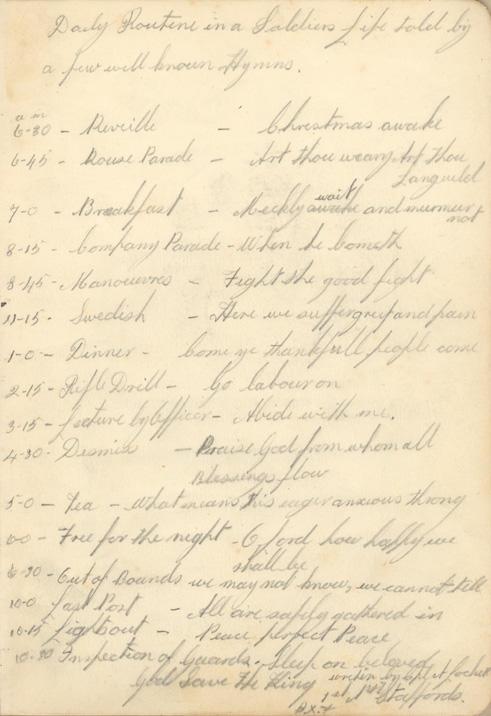 Daily Routine in a Soldiers Life told by
a few well known Hymns.
a m
6-30 - Reveille - Christmas awake
6-45 - Rouse Parade - Art thou weary Art Thou
Languild
7-0 - Breakfast - Meekly wait and murmur
not
8-15 - Company Parade - When he Cometh
8-45 - Manoeuvres - Fight the good fight
11-15 - Swedish - Here we suffer grief and pain
1-0 - Dinner - Come ye thankfull people come
2-15 - Rifle Drill - Go labour on
3-15 - Lecture by Officer - Abide with me.
4-30 - Dismiss - Praise God from whom all
Blessings flow
5-0 - Tea - What means this eager anxious throng
Free for the night - O lord how happy we
shall be
Out of Bounds we may not know, we cannot tell
10-0 Last Post - All are safely gathered in
10-15 Lights out - Peace, perfect Peace
10-30 Inspection of Guards. Sleep on beloved
God Save The King
1st Staffords.